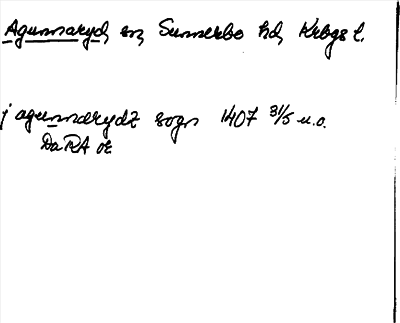 Agunnaryd, sn, Sunnerbo hd, Krbgs l.
j agunnarydz sogn 1407 31/5 u.o.
DaRA or